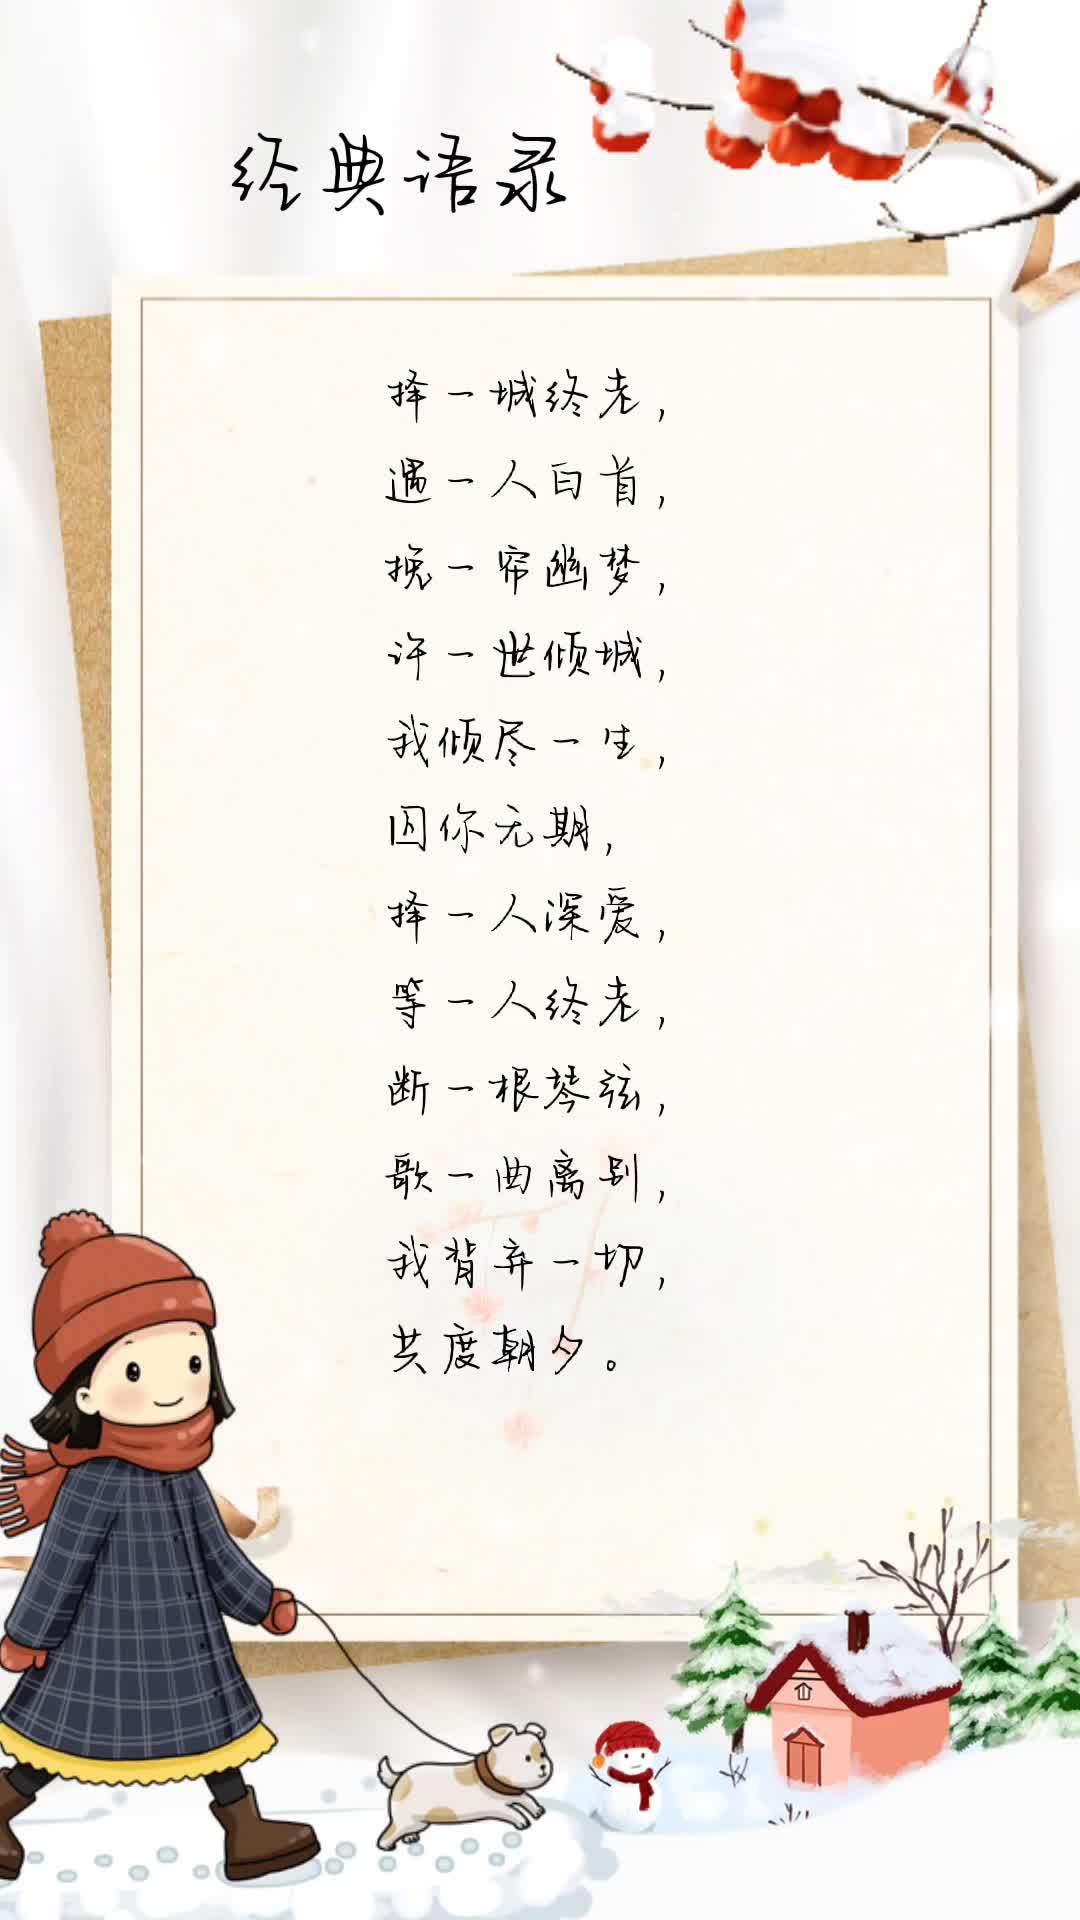 经典语录
择一城终老，
遇一人白首，
挽一帘幽梦，
许一世倾城，
我倾尽一生，
囚你无期，
择一人深爱，
等一人终老，
断一根琴弦，
歌一曲离别，
我背弃一切，
共度朝夕。